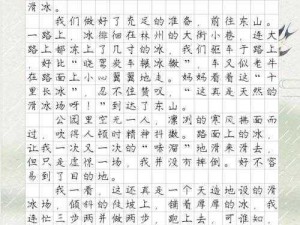 滑冰。
我们做好了充足的准备，前往东山。
一路上，冰徘徊在林州的大街小巷，连大
路上都冻上了几寸的冰，我们驱车于路上
，好比"晓驾炭车辗冰辙"，车又似老牛
在路面上小心翼翼地走。妈妈看着这"十
里长冰"，忍不住赞叹，"这真是天然的
滑冰场呀！"到达了东山。
公园里空无一人，凛冽的寒风拂面而
过，吹得人顿时精神抖擞。路面上的冰，
让我一次又一次的"哧溜"地滑来滑去，
但只是虚惊一场，我并没有摔倒。好不容
易到了目的地。
我一看，这还真是一个天造地设的滑
冰场，倾斜的陡坡上，铺着厚厚的冰，我
连忙三步两步并做两步，跑上去，可谁知，